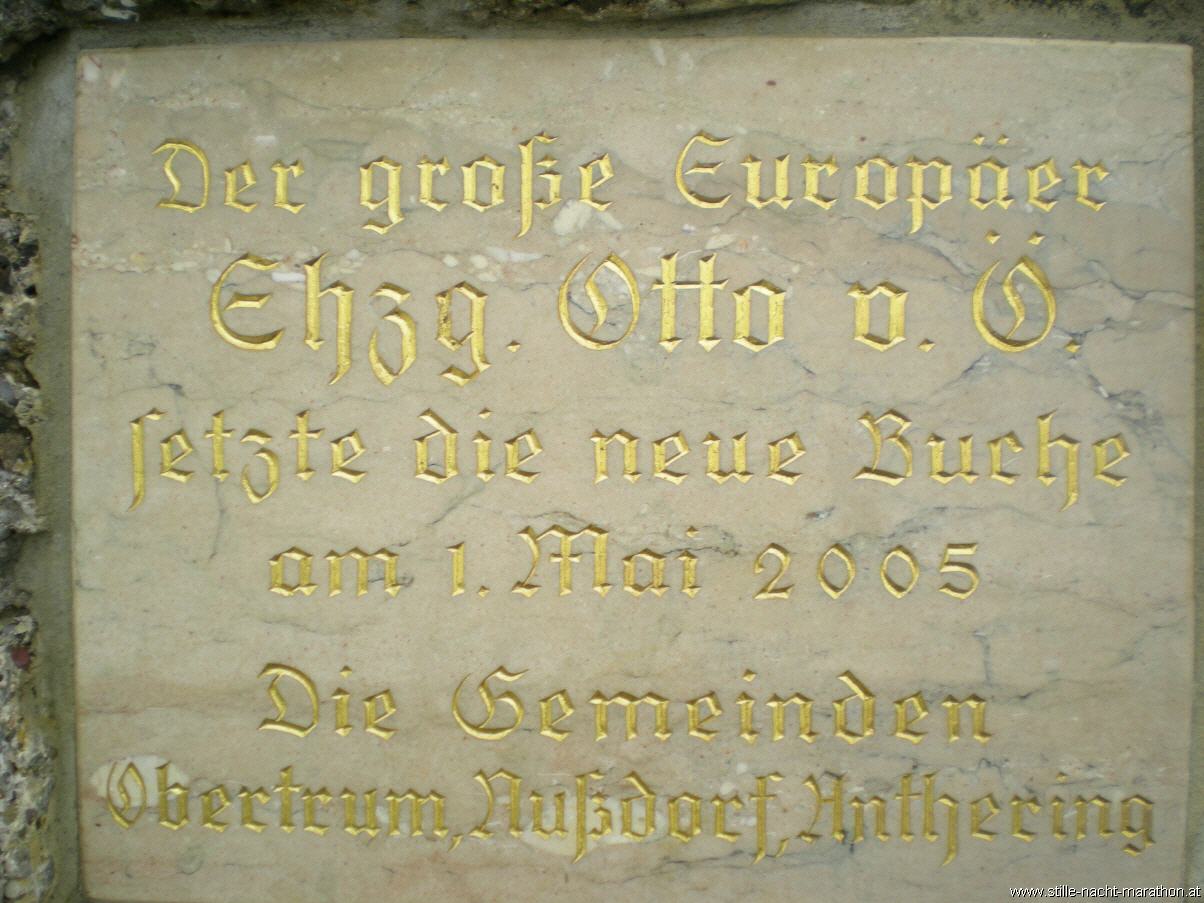 Der große Europäer
Ehzg. Otto v. Ö.
setzte die neue Buche
am 1. Mai 2005
Die Gemeinden
Obertrum, Nußdorf, Anthering
www.stille-nacht-marathon.at